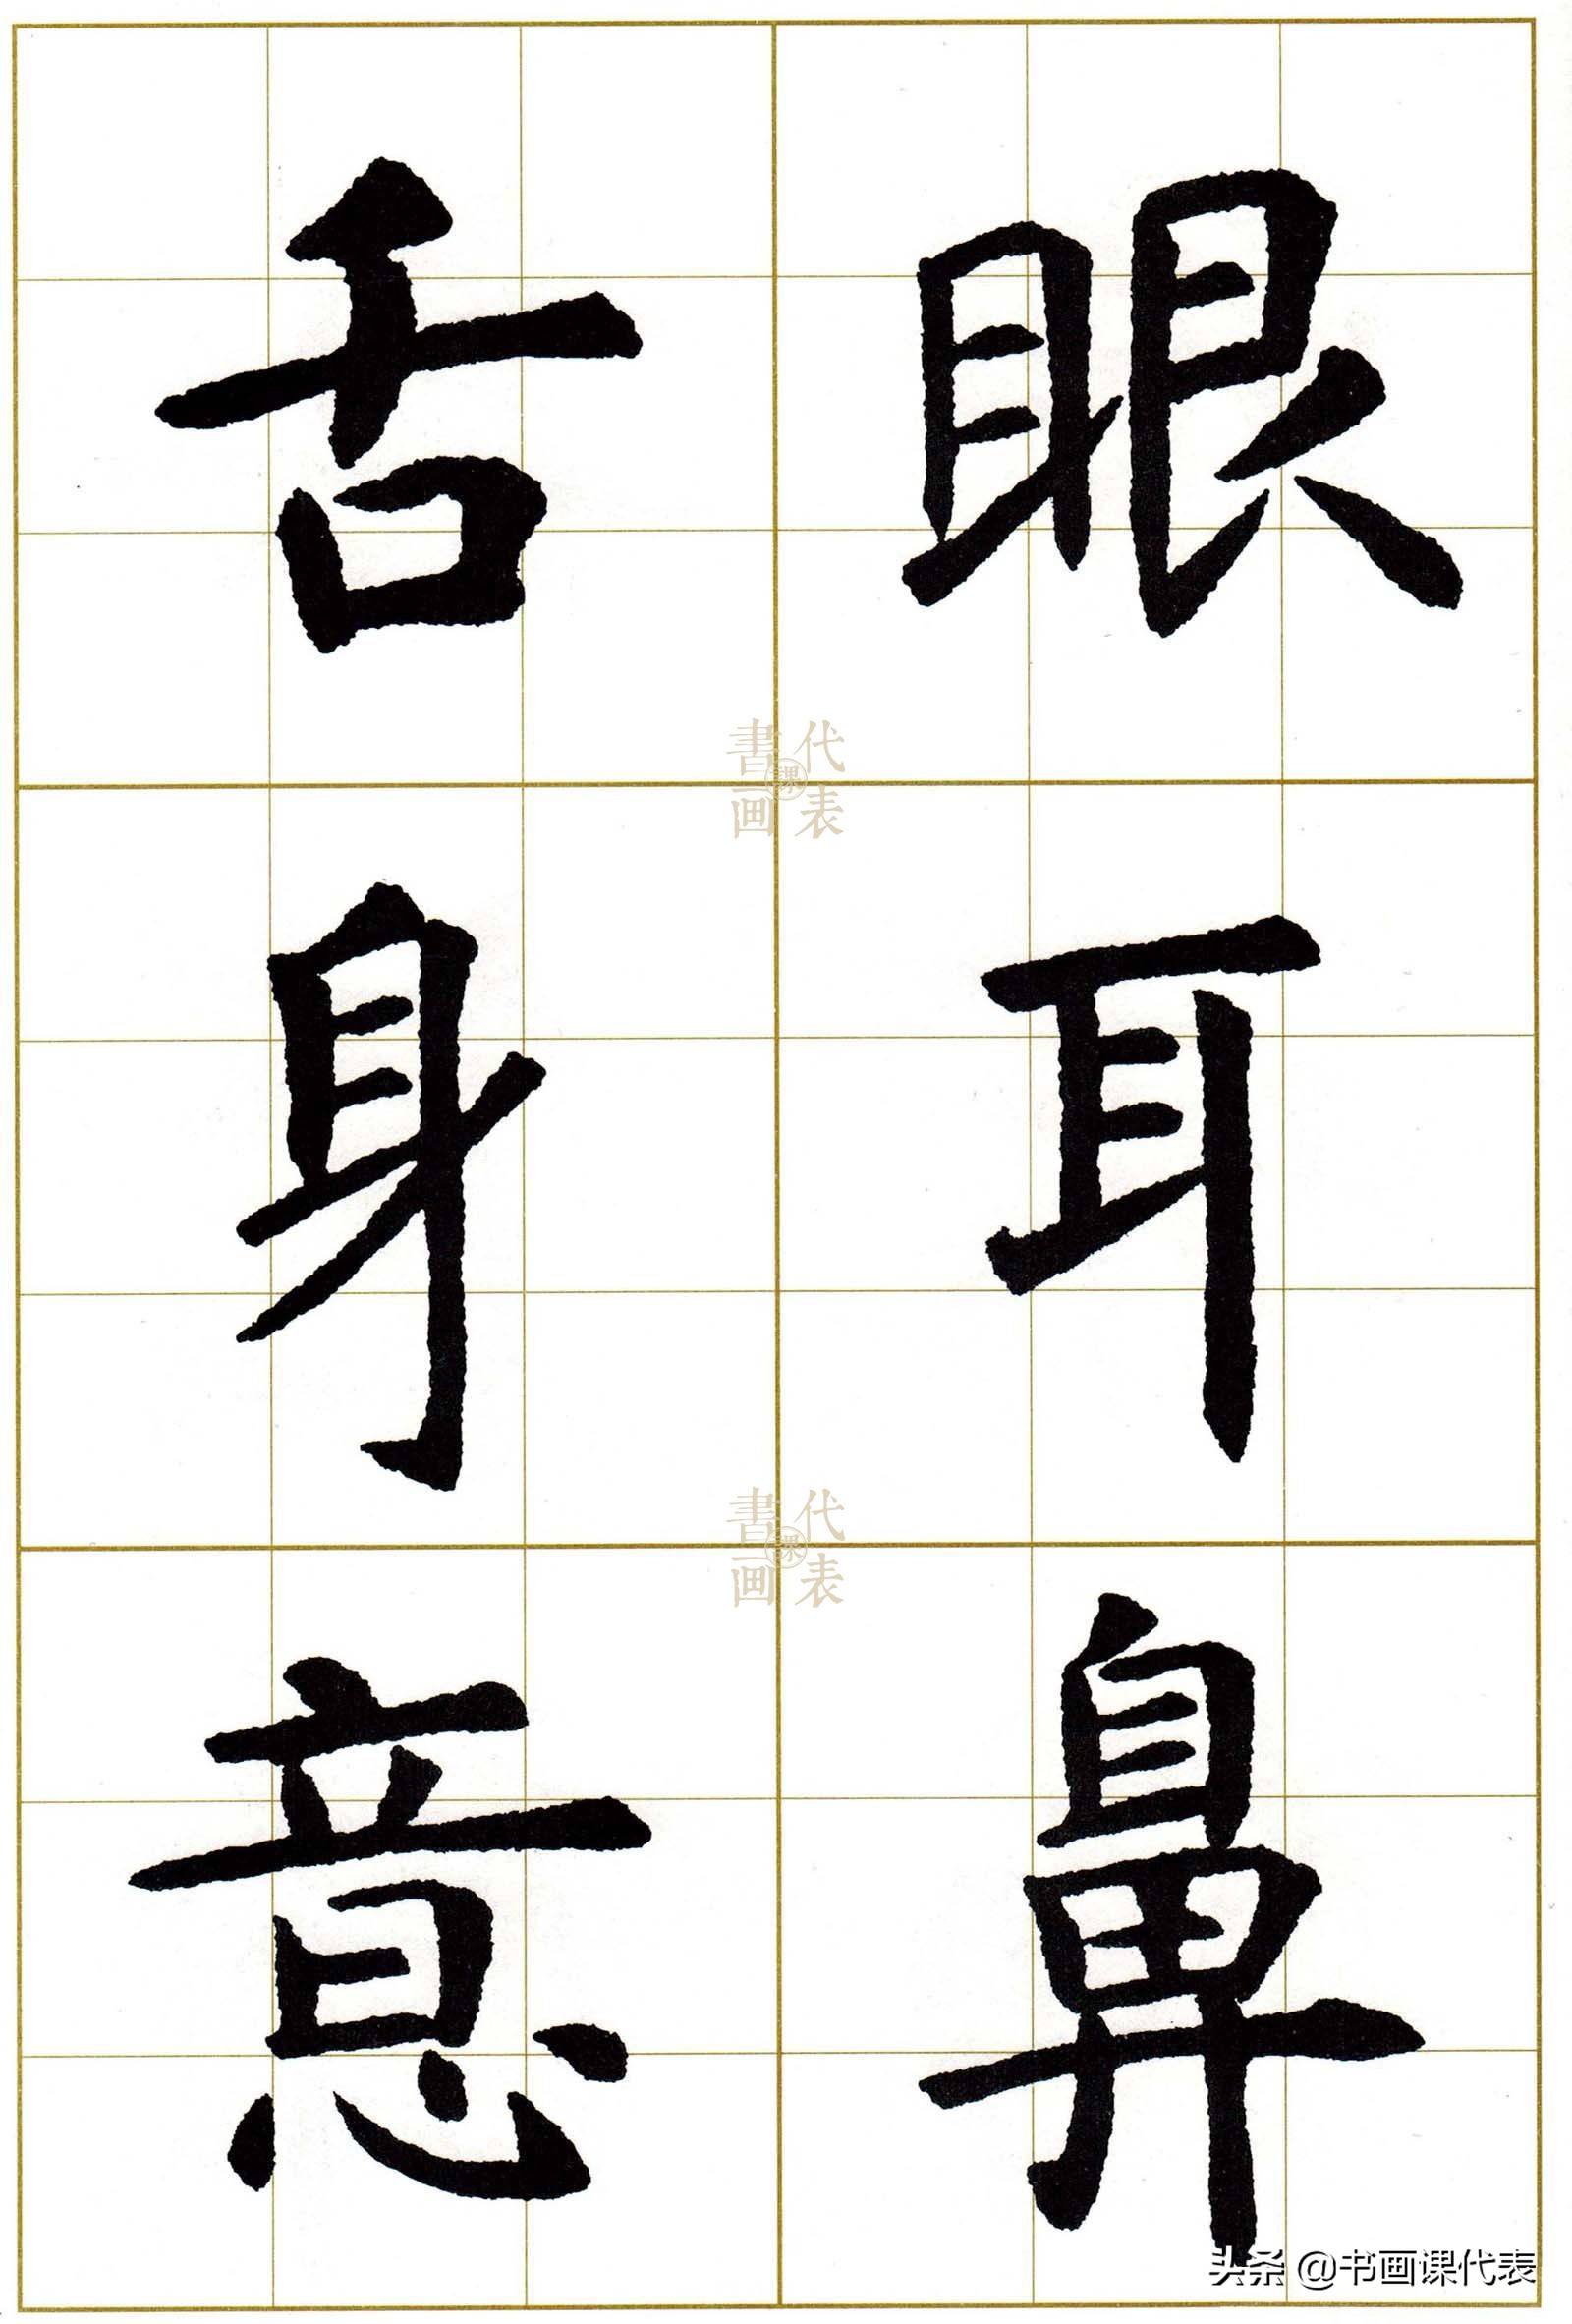 眼耳鼻
舌身意
書画课代表
書画课代表
头条 @书画课代表